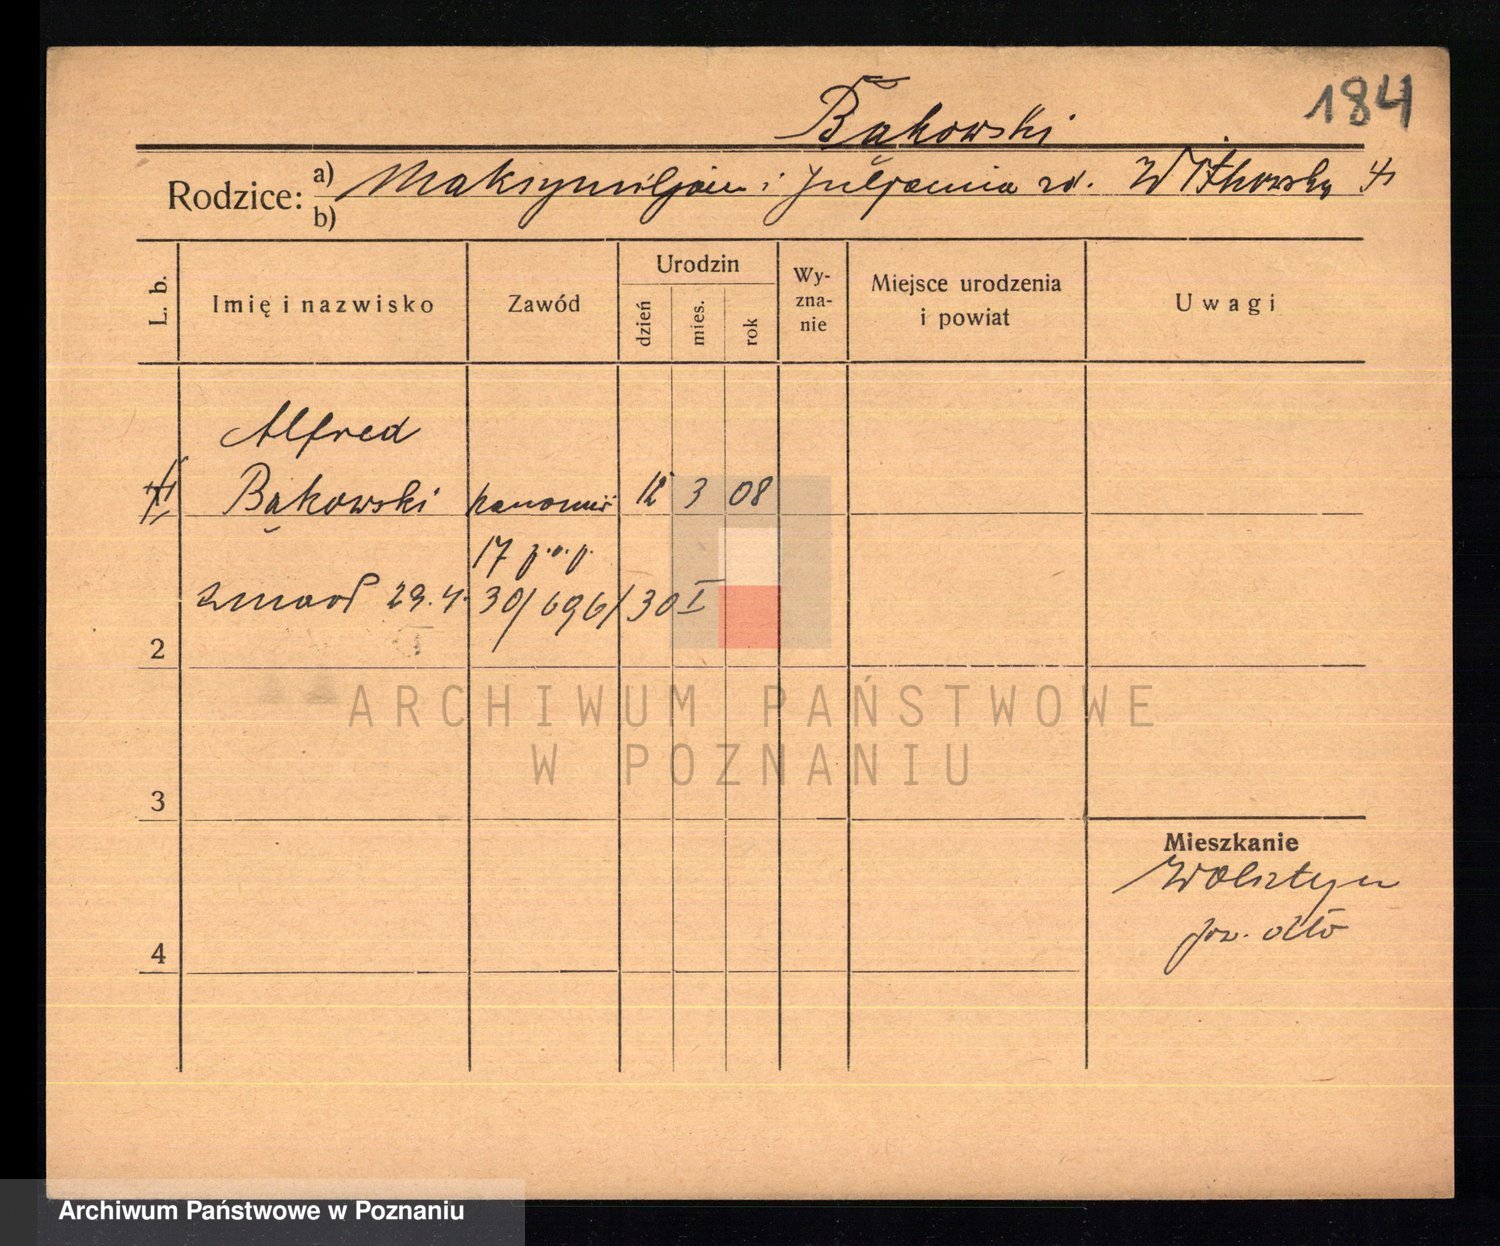 184
Bąkowski
Rodzice:
a) Maksymiljan i Juljanna zd. Witkowska
b)
L. b.
Imię i nazwisko
Zawód
Urodzin
dzień
mies.
rok
Wy-
zna-
nie
Miejsce urodzenia
i powiat
Uwagi
Alfred
Bąkowski kanonier 12 3 08
17 p.a.p.
zmarł 29.4. 30/696/30 I
2
3
4
Mieszkanie
Wolsztyn
ARCHIWUM PAŃSTWOWE
W POZNANIU
Archiwum Państwowe w Poznaniu